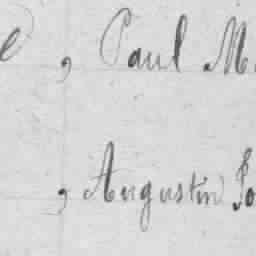 e , Paul M
, Augustin Jo